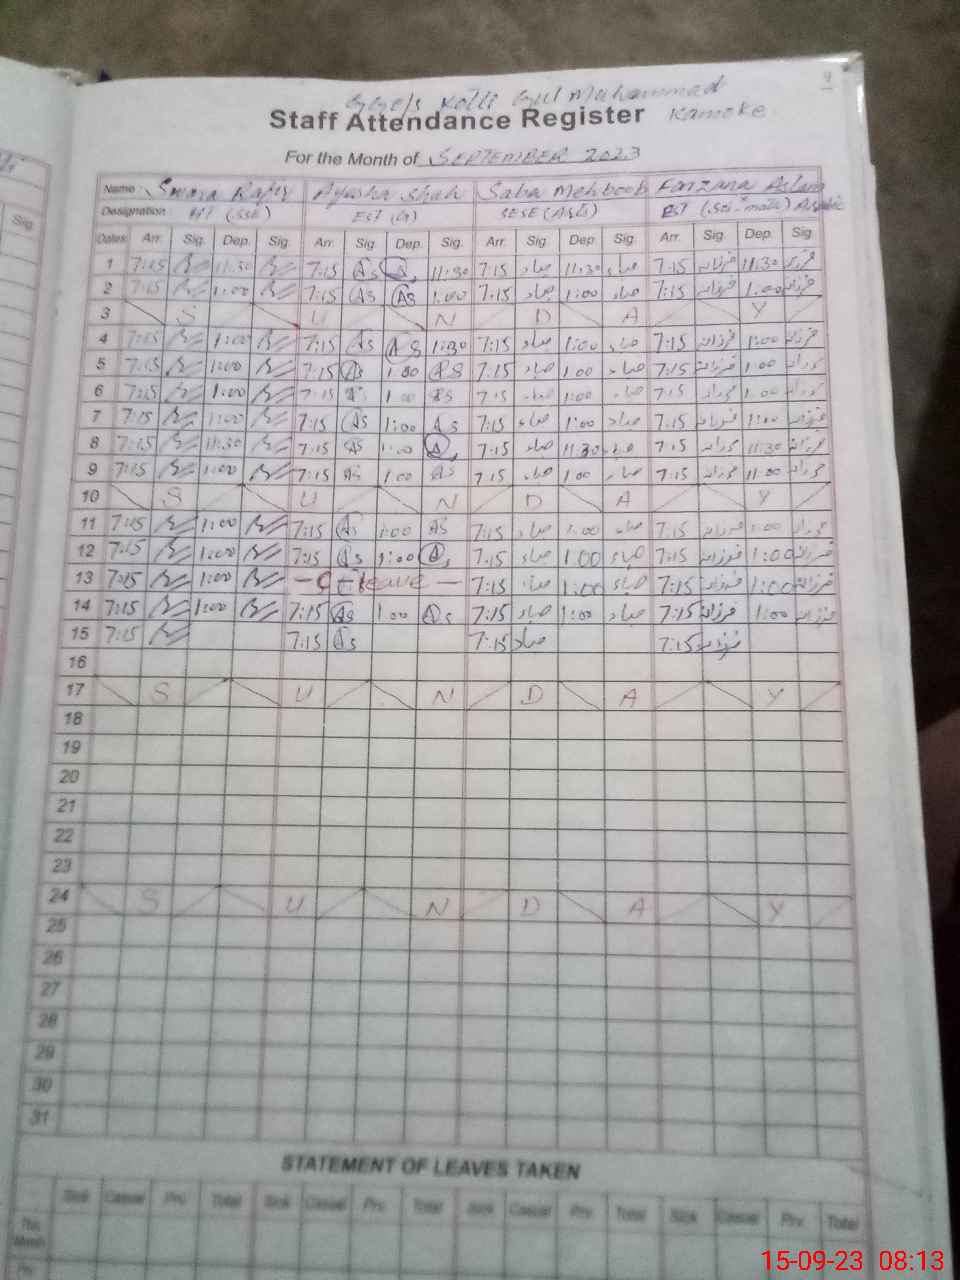 9
GGE/S Kotli Gul Muhammad
Staff Attendance Register Kamoke
For the Month of SEPTEMBER 2023
Name: Ayesha Shah Saba Mehboob Farzana Aslam
Designation: HT (SSE) EST (G) SESE (Arts) EST (Sci-math)
Dates Arr. Sig. Dep. Sig. Arr. Sig. Dep. Sig. Arr. Sig. Dep. Sig. Arr. Sig. Dep. Sig.
1 7:15 11:30 7:15 As 11:30 7:15 صباء 11:30 صباء 7:15 فرزانہ 11:30 فرزانہ
2 7:15 1:00 7:15 As As 1:00 7:15 صباء 1:00 صباء 7:15 فرزانہ 1:00 فرزانہ
3 S U N D A Y
4 7:15 1:00 7:15 As As 1:30 7:15 صباء 1:00 صباء 7:15 فرزانہ 1:00 فرزانہ
5 7:15 1:00 7:15 As 1:00 As 7:15 صباء 1:00 صباء 7:15 فرزانہ 1:00 فرزانہ
6 7:15 1:00 7:15 As 1:00 As 7:15 صباء 1:00 صباء 7:15 فرزانہ 1:00 فرزانہ
7 7:15 1:00 7:15 As 1:00 As 7:15 صباء 1:00 صباء 7:15 فرزانہ 1:00 فرزانہ
8 7:15 11:30 7:15 As 1:00 7:15 صباء 11:30 صباء 7:15 فرزانہ 11:30 فرزانہ
9 7:15 1:00 7:15 As 1:00 As 7:15 صباء 1:00 صباء 7:15 فرزانہ 11:00 فرزانہ
10 S U N D A Y
11 7:15 1:00 7:15 As 1:00 As 7:15 صباء 1:00 صباء 7:15 فرزانہ 1:00 فرزانہ
12 7:15 1:00 7:15 As 1:00 7:15 صباء 1:00 صباء 7:15 فرزانہ 1:00 فرزانہ
13 7:15 1:00 leave 7:15 صباء 1:00 صباء 7:15 فرزانہ 1:00 فرزانہ
14 7:15 1:00 7:15 As 1:00 As 7:15 صباء 1:00 صباء 7:15 فرزانہ 1:00 فرزانہ
15 7:15 7:15 As 7:15 صباء 7:15 فرزانہ
16
17 S U N D A Y
18
19
20
21
22
23
24 S U N D A Y
25
26
27
28
29
30
31
STATEMENT OF LEAVES TAKEN
Sick Casual Prv. Total Sick Casual Prv. Total Sick Casual Prv. Total Sick Casual Prv. Total
This Month
Prv.
15-09-23 08:13